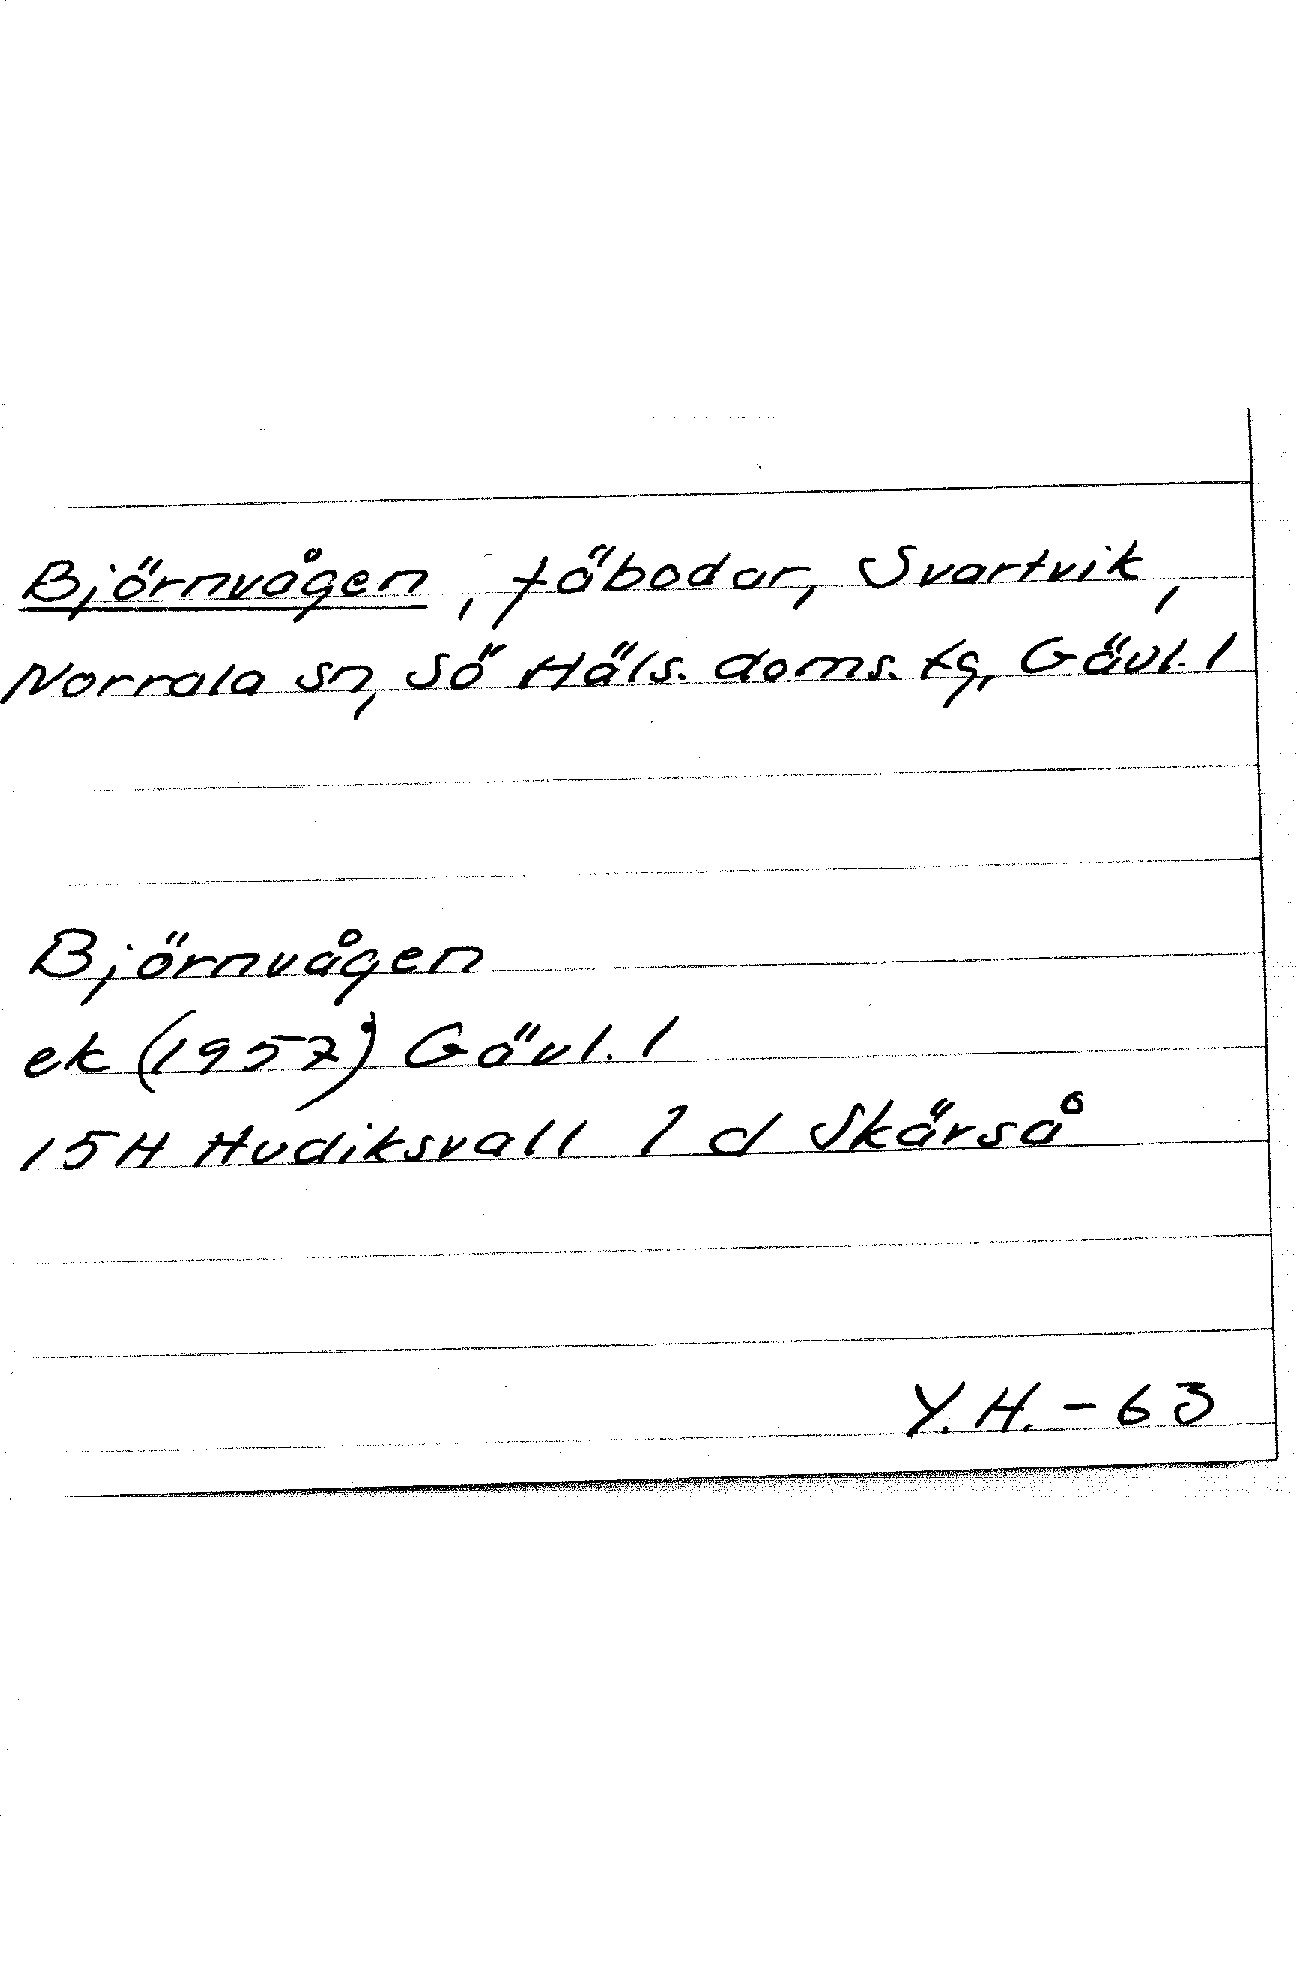 Björnvågen, fäbodar, Svartvik,
Norrala sn, Sö Häls. doms. tg, Gävl. l
Björnvågen
ek (1957) Gävl. l
15H Hudiksvall 1 d Skärså
Y.H. - 63